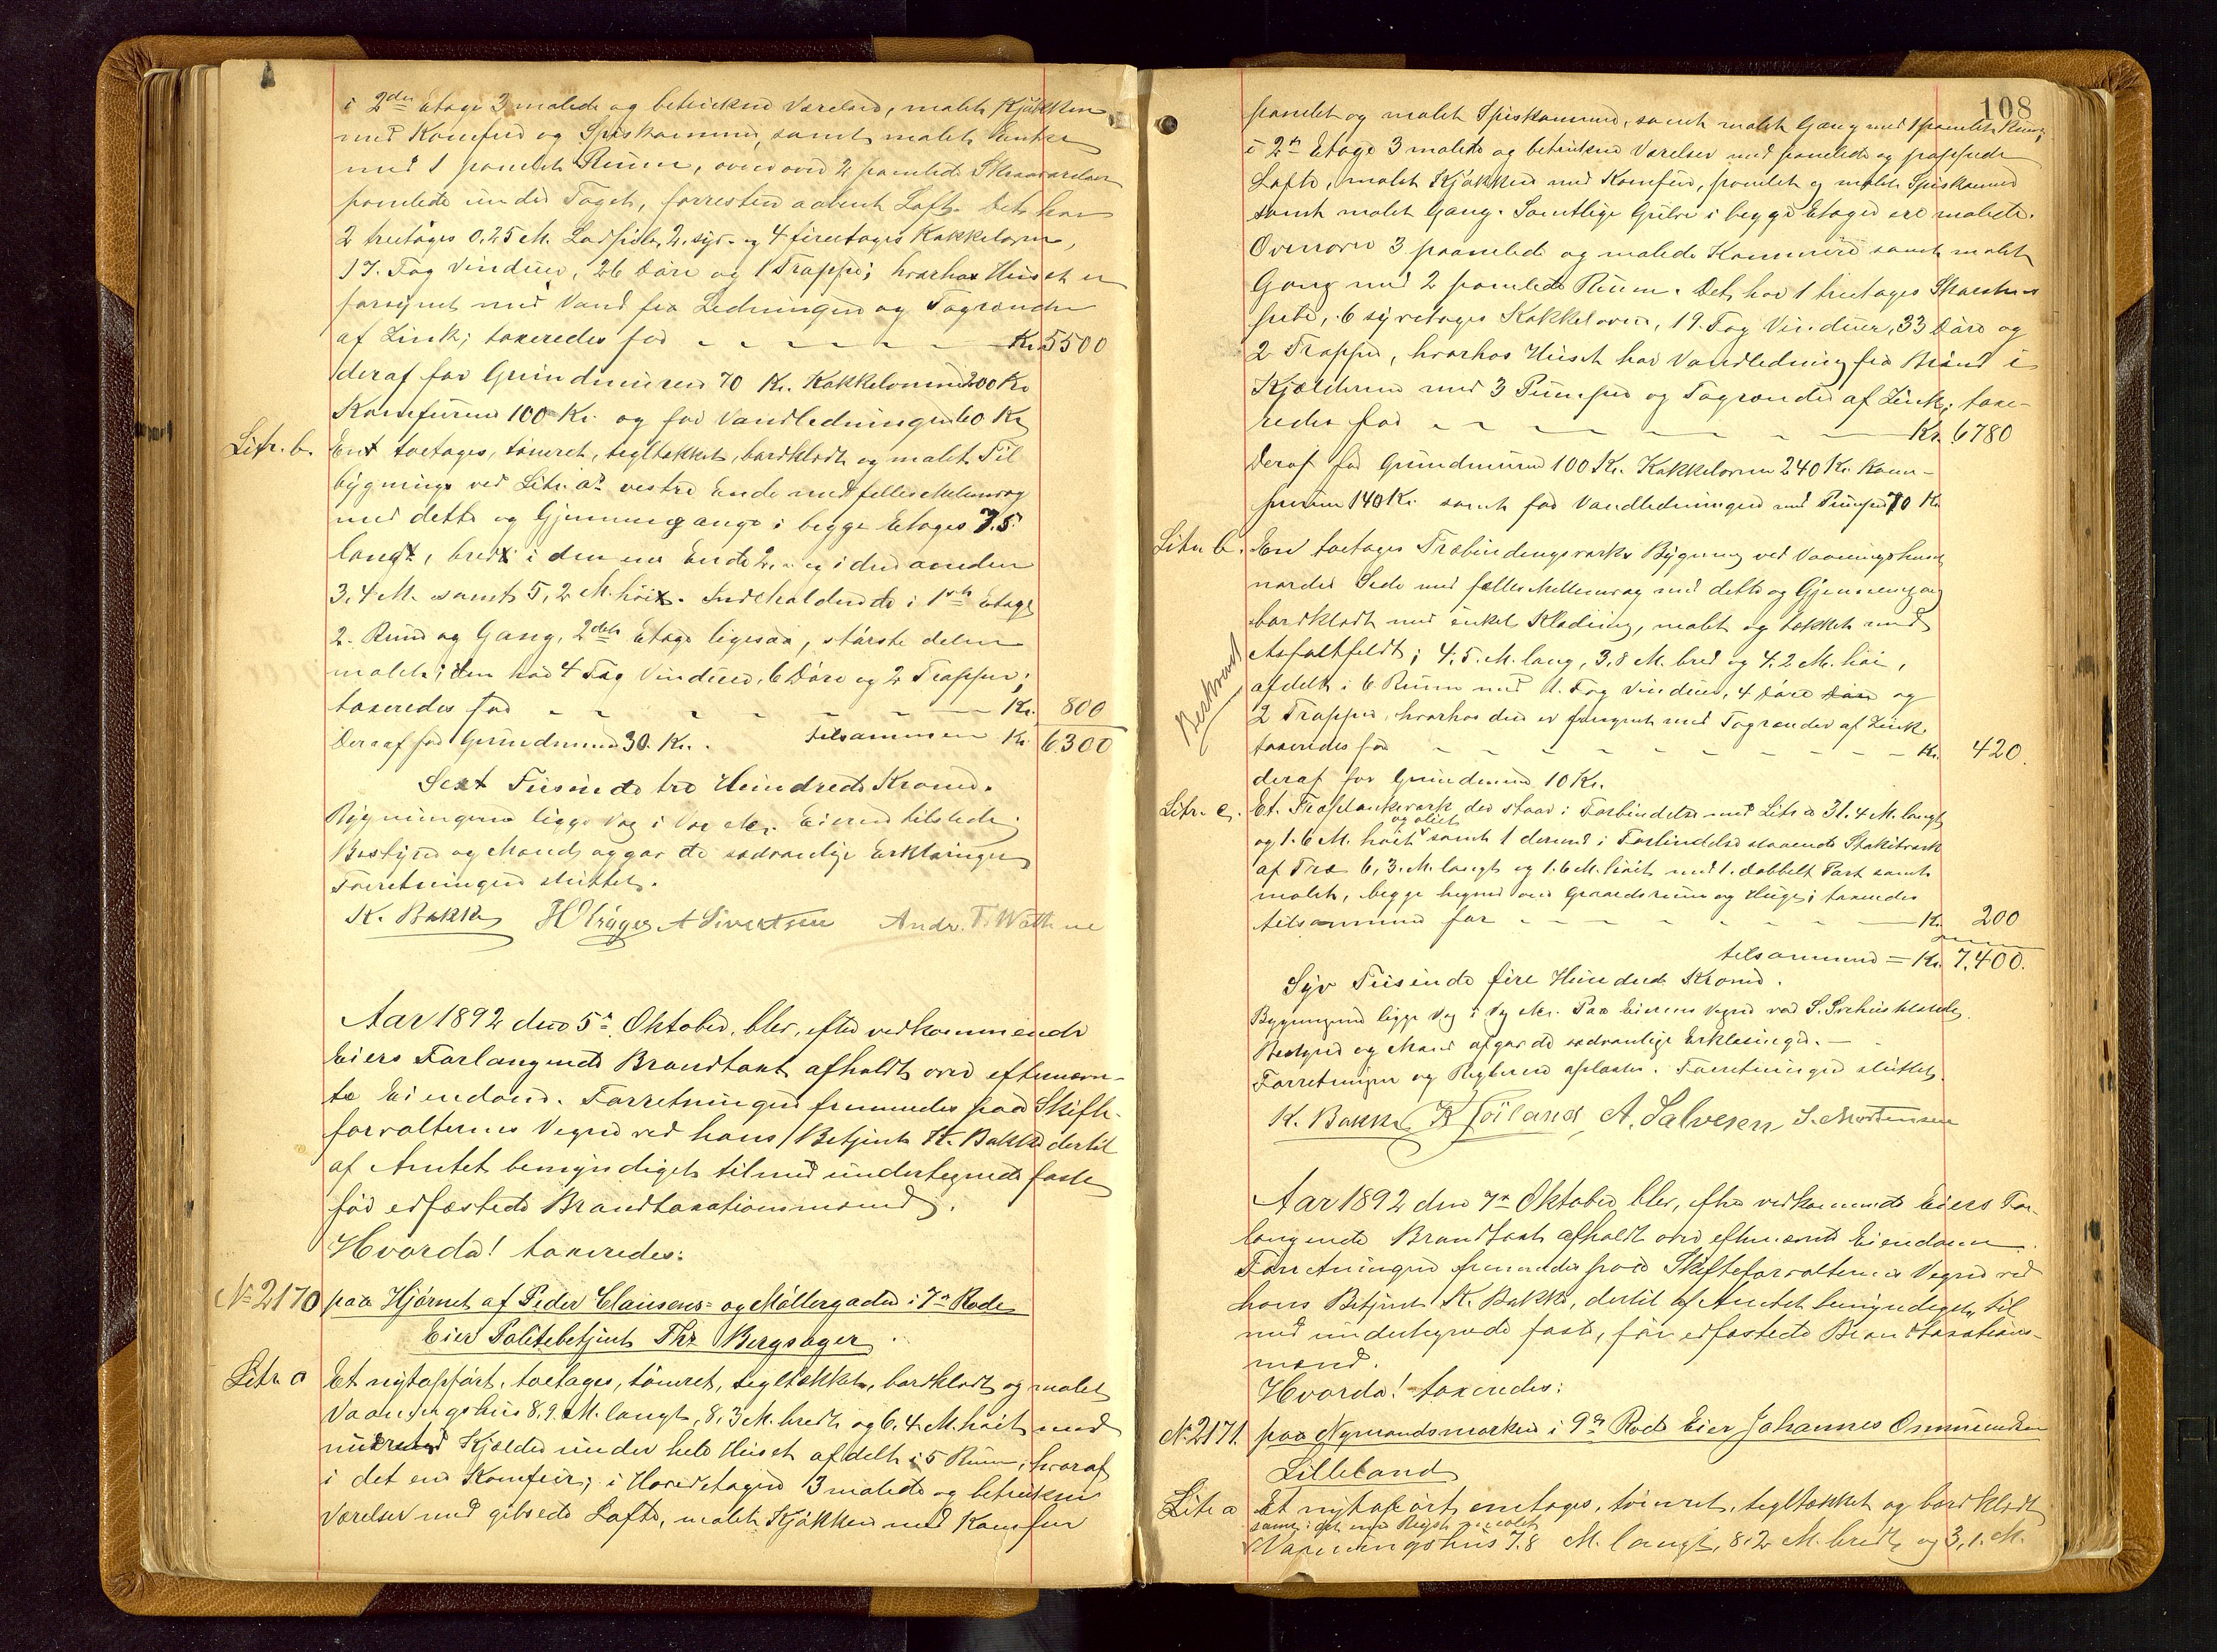 i 2den Etage 3 malede og betrukne Værelser, malet Kjøkken
med Komfur og Spiskammer, samt malet Entre
med 1 panelet Ruum, ovenover 2 panelede Skraaværelser
panelede under Taget, forresten aabent Loft. Det har
2 treetages 0.25 M. 2. syv- og 4 fireetages Kakkelovne,
17. Fag Vinduer, 26 Døre og 1 Trappe; hvorhos Huset er
forsynet med Vand fra Ledningen og Tagrender
af Zink; taxeredes for - - - - - - Kr. 5500
deraf for Grundmuren 70 Kr. Kakkelovnene 200 Kr
Komfurene 100 Kr. og for Vandledningen 60 Kr
Litr. b. En toetages, tømret, tegltækket, bordklædt og malet Til
bygning ved Litr. a's vestre Ende med fælles Mellemvæg
med dette og Gjennemgange i begge Etager 7.5
langt, bredt i den ene Ende 2, og i den anden
3,4 M. samt 5,2 M. høi. Indeholdende i 1ste Etage
2. Rum og Gang, 2den Etage ligesaa, største delen
malet; den har 4 Fag Vinduer, 6 Døre og 2 Trapper;
taxeredes for - - - - - - Kr. 800
Deraf for Grundmuren 30. Kr. tilsammen Kr. 6300
Sext Tusinde tre Hundrede Kroner.
Bygningerne ligge Væg i Væg etc. Eieren tilstede.
Bestyrer og Mænd afgav de sædvanlige Erklæringer
Forretningen sluttet.
K. Bakke A Sivertsen Andr. T. Wathne
Aar 1892 den 5te Oktober, blev, efter vedkommende
Eiers Forlangende Brandtaxt afholdt over efternævn-
te Eiendom. Forretningen fremmedes paa Skifte-
forvalterens Vegne ved hans Betjent K. Bakke dertil
af Amtet bemyndiget tilmed undertegnede faste
før edfæstede Brandtaxationsmænd.
Hvorda! taxeredes:
No 2170 paa Hjørnet af Peder Clausens- og Møllergaden i 7de Rode
Eier Politibetjent Thr Bergsager
Litr. a Et nytopført, toetages, tømret, tegltækket, bordklædt og malet
Vaaningshus 8,9. M. langt, 8,3 M. bredt og 6,4. M. høit med
muret Kjælder under hele Huset afdelt i 5 Rum, hvoraf
i det ene Komfur; i Hovedetagen 3 malede og betrukne
Værelser med gibsede Lofte, malet Kjøkken med Komfur
108
panelet og malet Spiskammer, samt malet Gang med 1 panelet Rum,
i 2den Etage 3 malede og betrukne Værelser med panelede og pappede
Lofte, malet Kjøkken med Komfur, panelet og malet Spiskammer
samt malet Gang. Samtlige Gulve i begge Etager ere malede.
Ovenover 3 panelede og malede Kammere samt malet
Gang med 2 panelede Rum. Det har 1 treetages Skorstens
pibe, 6 syvetages Kakkelovne, 19. Fag Vinduer, 33 Døre og
2 Trapper, hvorhos Huset har Vandledning fra Brønd i
Kjælderen med 3 Pumper og Tagrender af Zink; taxe-
redes for - - - - - - Kr. 6780
Deraf for Grundmuren 100 Kr. Kakkelovne 240 Kr. Kom-
furene 140 Kr. samt for Vandledningen med Pumper 70 Kr
Litr. b. En toetages Træbindingsværks Bygning ved Vaaningshuset
nordre Side med fælles Mellemvæg med dette og Gjennemgang
bordklædt med enkel Klædning, malet og tækket med
Asfaltfeldt; 4.5. M. lang, 3,8 M. bred og 4.2 M. høi,
afdelt i 6 Rum med 11. Fag Vinduer, 4 Døre Døre og
2 Trapper, hvorhos den er forsynet med Tagrender af Zink.
taxeredes for - - - - - - - Kr. 420.
deraf for Grundmuren 10 Kr.
Litr. c. Et. Træplankeværk der staar i Forbindelse med Litr. a 31.4 M. langt
og oliet
og 1.6 M. høit samt 1 dermed i Forbindelse staaende Stakitværk
af Træ 6,3. M. langt og 1.6 M. høit med 1. dobbelt Port samt
malet, begge hegner om Gaardsrum og Hauge; taxeredes
tilsammen for - - - - - - Kr. 200
tilsammen = Kr. 7,400.
Syv Tusinde fire Hundrede Kroner.
Bygningerne ligge Væg i Væg etc. Paa Eierens Vegne var S. tilstede.
Bestyrer og Mænd afgav de sædvanlige Erklæringer. -
Forretningen og oplæstes. Forretningen sluttet.
K. Bakke A. Salvesen S. Mortensen
Aar 1892 den 7de Oktober blev, efter vedkommende Eiers For-
langende Brandtaxt afholdt over efternævnte Eiendom.
Forretningen fremmedes paa Skifteforvalterens Vegne ved
hans Betjent K. Bakke, dertil af Amtet bemyndiget, til
med undertegnede faste, før edfæstede Brandtaxations-
mænd.
Hvorda! taxeredes:
No 2171. paa Nymandsmarken i 9de Rode Eier Johannes Ommundsen
Lilleland
Litr. a Et nytopført, enetages, tømret, tegltækket og bordklædt
Vaaningshus 7.8 M. langt, 8.2 M. bredt, og 3,1. M.